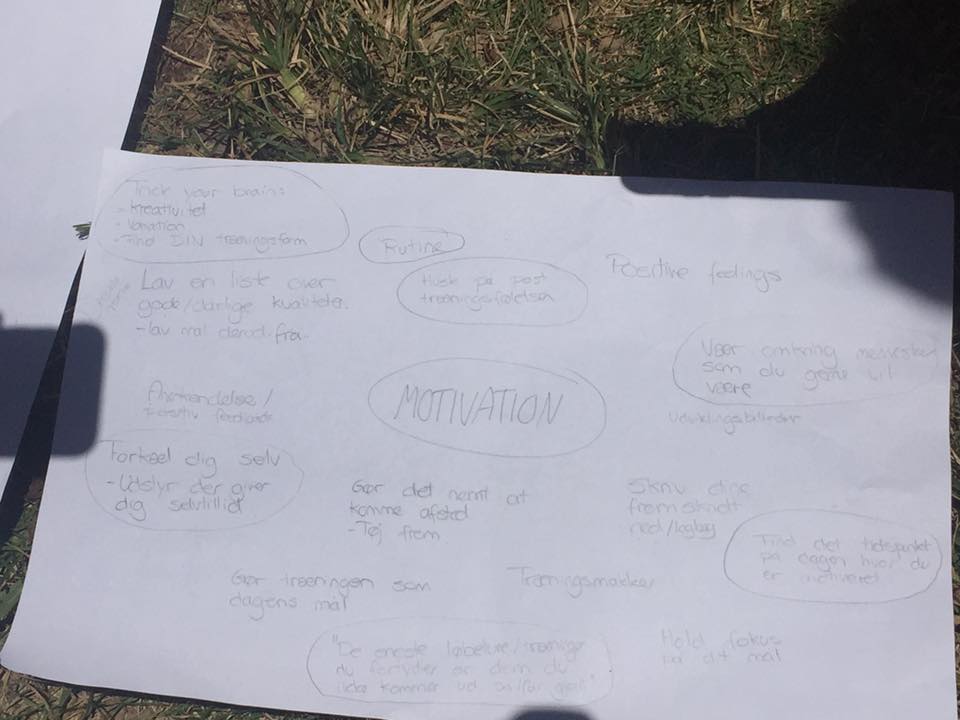 Trick your brain:
- Kreativitet
- Variation
- Find DIN træningsform
Rutine
Husk på post
træningsfølelsen
Positive feelings
Lav en liste over
gode/dårlige kvaliteter.
- lav mål derudfra
MOTIVATION
Vær omkring mennesker
som du gerne vil
være
Udviklingsbilleder
Anerkendelse/
Positiv feedback
Forkæl dig selv
- Udstyr der giver
dig selvtillid
Gør det nemt at
komme afsted
- Tøj frem
Skriv dine
fremskridt
ned/logbog
Find det tidspunkt
på dagen hvor du
er motiveret
Gør træningen som
dagens mål
Træningsmakker
"De eneste løbeture/træninger
du fortryder er dem du
ikke kommer ud
Hold fokus
på dit mål